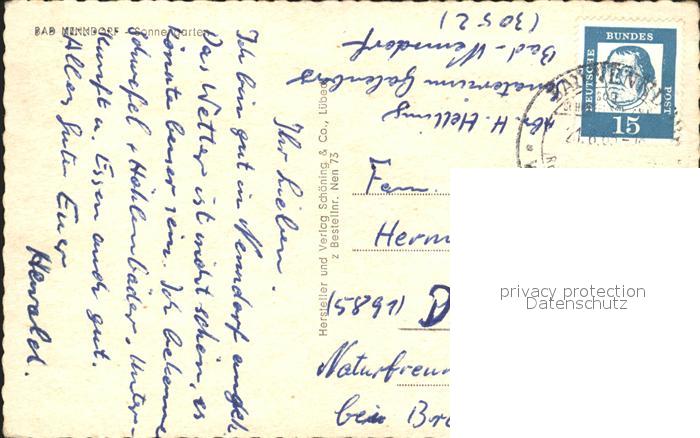 BAD NENNDORF - Sonnengarten
Ihr Lieben.
Ich bin gut in Nenndorf angek.
Das Wetter ist nicht schön, es
könnte besser sein. Ich bekomme
Schwefel + Höhlenbäder. Unter-
kunft u. Essen auch gut.
Alles Gute Euer
Hersteller und Verlag Schöning & Co., Lübeck
z Bestellnr. Nen 73
Abs. H. Helling
Bad-Nenndorf
(3052)
DEUTSCHE
BUNDES
POST
15
Fam.
Herm
(5891)
Naturfreun
bei Br
privacy protection
Datenschutz